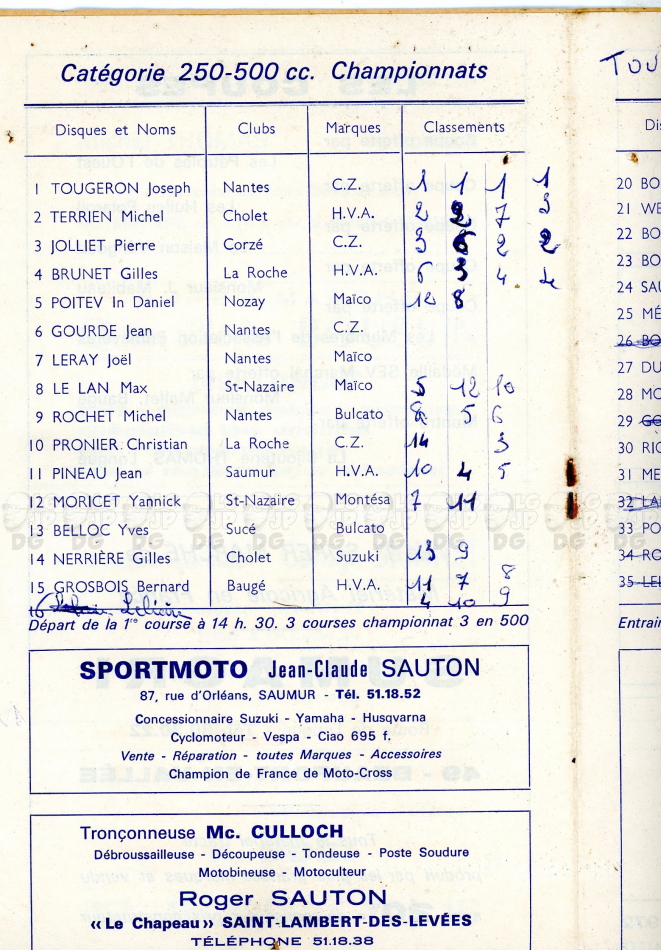 Catégorie 250-500 cc. Championnats
TOU
Disques et Noms Clubs Marques Classements Di
1 TOUGERON Joseph Nantes C.Z. 1 1 1 1 20 BO
2 TERRIEN Michel Cholet H.V.A. 2 2 7 3 21 WE
3 JOLLIET Pierre Corzé C.Z. 3 6 2 2 22 BO
4 BRUNET Gilles La Roche H.V.A. 6 3 4 4 23 BO
5 POITEV In Daniel Nozay Maïco 12 8 24 SAU
6 GOURDE Jean Nantes C.Z. 25 MÉ
7 LERAY Joël Nantes Maïco 26 BO
8 LE LAN Max St-Nazaire Maïco 5 12 10 27 DU
9 ROCHET Michel Nantes Bulcato 8 5 6 28 MO
10 PRONIER Christian La Roche C.Z. 14 3 29 GO
11 PINEAU Jean Saumur H.V.A. 10 4 5 30 RIC
12 MORICET Yannick St-Nazaire Montésa 7 11 31 ME
13 BELLOC Yves Sucé Bulcato 32 LA
14 NERRIÈRE Gilles Cholet Suzuki 13 9 33 PO
15 GROSBOIS Bernard Baugé H.V.A. 11 7 8 34 RO
16 4 10 9 35 LEI
Départ de la 1re course à 14 h. 30. 3 courses championnat 3 en 500
Entrain
SPORTMOTO Jean-Claude SAUTON
87, rue d'Orléans, SAUMUR - Tél. 51.18.52
Concessionnaire Suzuki - Yamaha - Husqvarna
Cyclomoteur - Vespa - Ciao 695 f.
Vente - Réparation - toutes Marques - Accessoires
Champion de France de Moto-Cross
Tronçonneuse Mc. CULLOCH
Débroussailleuse - Découpeuse - Tondeuse - Poste Soudure
Motobineuse - Motoculteur
Roger SAUTON
« Le Chapeau » SAINT-LAMBERT-DES-LEVÉES
TÉLÉPHONE 51.18.38